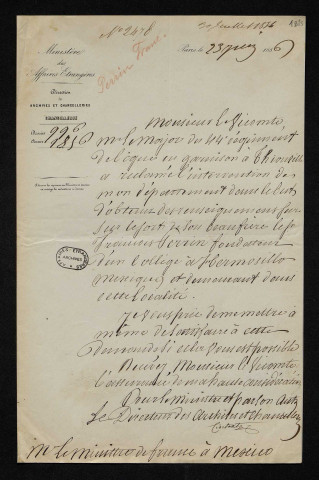 No 2476
Juillet 1856
Ministère
des
Affaires Etrangères
Direction
des
ARCHIVES ET CHANCELLERIES
CHANCELLERIE
Perrin Franç.
Paris, le 23 1856
Monsieur le Vicomte,
Mr le Major du 44e régiment
de ligne en garnison à Thionville
a réclamé l'intervention de
mon département dans le but
d'obtenir des renseignemens
sur le sort de son beau frère le Sr
François Perrin fondateur
d'un Collège à Hermosillo
Mexique, et demeurant dans
cette localité.
Je vous prie de me mettre à
même de satisfaire à cette
demande si cela vous est possible
Recevez, Monsieur le Vicomte,
l'assurance de ma haute considération
Pour le Ministre et par son Aut.
Le Directeur des Archives et Chancelleries
AFFAIRES ETRANGERES
ARCHIVES
Mr le Ministre de France à Mexico